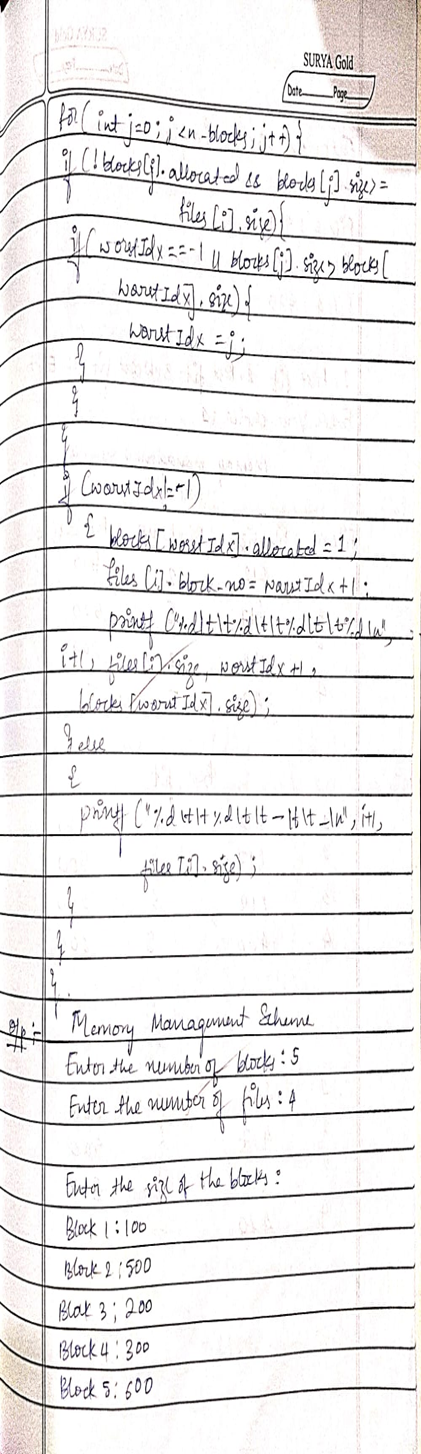 SURYA Gold
Date Page
for( int j=0; j<n-blocks; j++) {
if (!blocks[j].allocated && blocks[j].size>=
files[i].size){
if(worstIdx==-1 || blocks[j].size>blocks[
worstIdx].size){
worstIdx =j;
}
}
}
if (worstIdx!=-1)
{ blocks[worstIdx].allocated = 1;
files[i].block-no= worstIdx+1;
printf ("%d\t\t%d\t\t%d\t\t%d\n",
i+1, files[i].size, worstIdx+1,
blocks[worstIdx].size);
} else
{
printf ("%d\t\t%d\t\t-\t\t-\n", i+1,
files[i].size);
}
}
}
O/p:- Memory Management Scheme
Enter the number of blocks:5
Enter the number of files:4
Enter the size of the blocks:
Block 1:100
Block 2:500
Block 3; 200
Block 4:300
Block 5:600